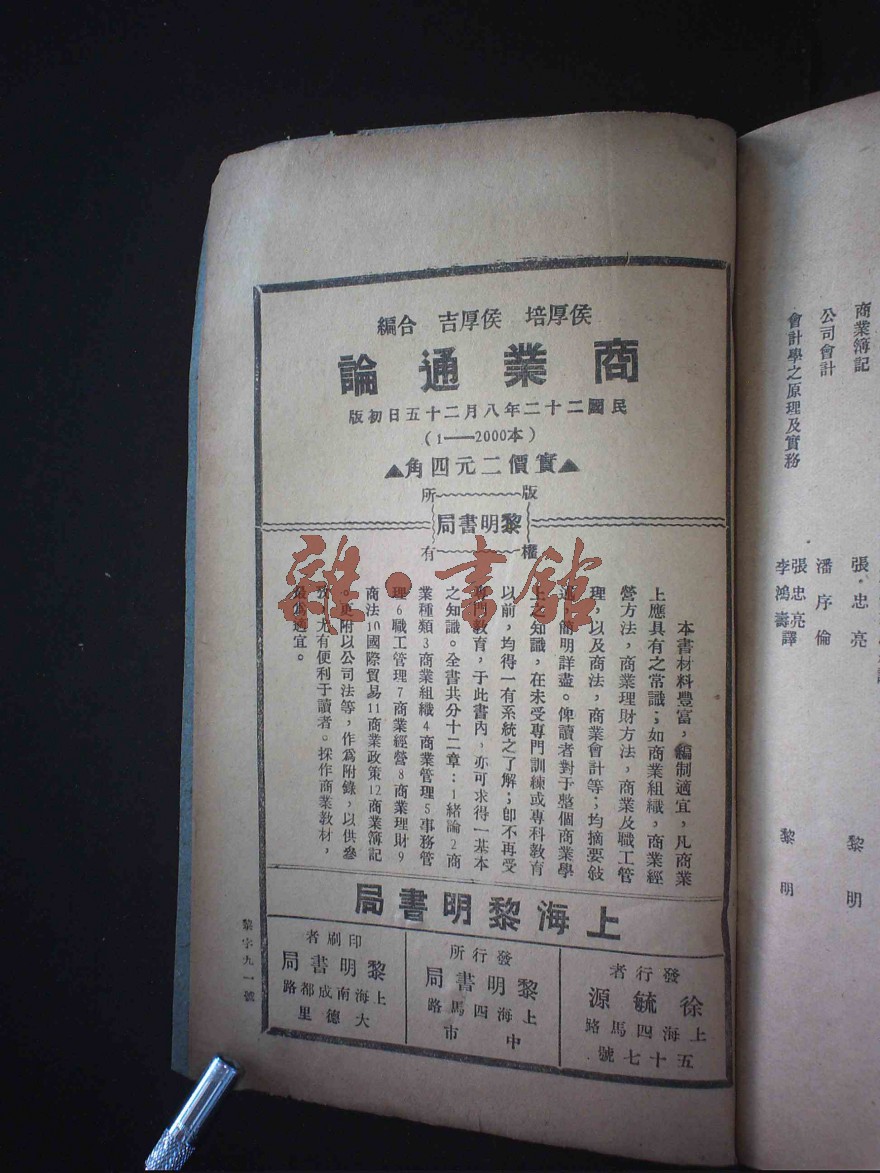 侯厚培 侯厚吉 合編
商業通論
民國二十二年八月二十五日初版
(1——2000本)
▲實價二元四角▲
版權所有
黎明書局
本書材料豐富，編制適宜，凡商業
上應具有之常識；如商業組織，商業經
營方法，商業理財方法，商業及職工管
理，以及商法，商業會計等；均摘要敍
述，簡明詳盡。俾讀者對于整個商業學
上之知識，在未受專門訓練或專科教育
以前，均得一有系統之了解；卽不再受
專門教育，于此書內，亦可求得一基本
之知識。全書共分十二章：1緒論2商
業種類3商業組織4商業管理5事務管
理6職工管理7商業經營8商業理財9
商法10國際貿易11商業政策12商業簿記
。更附以公司法等，作爲附錄，以供參
攷，尤有便利于讀者。採作商業教材，
最爲適宜。
上海黎明書局
發行者
徐毓源
上海四馬路
五十七號
發行所
黎明書局
上海四馬路
中市
印刷者
黎明書局
上海南成都路
大德里
黎字九一號
商業簿記 張忠亮 黎明
公司會計 潘序倫
會計學之原理及實務 張忠亮 李鴻壽譯 黎明
雜·書館